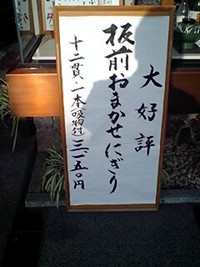 大好評
板前おまかせにぎり
十二貫・一本(吸物付)三、一五〇円